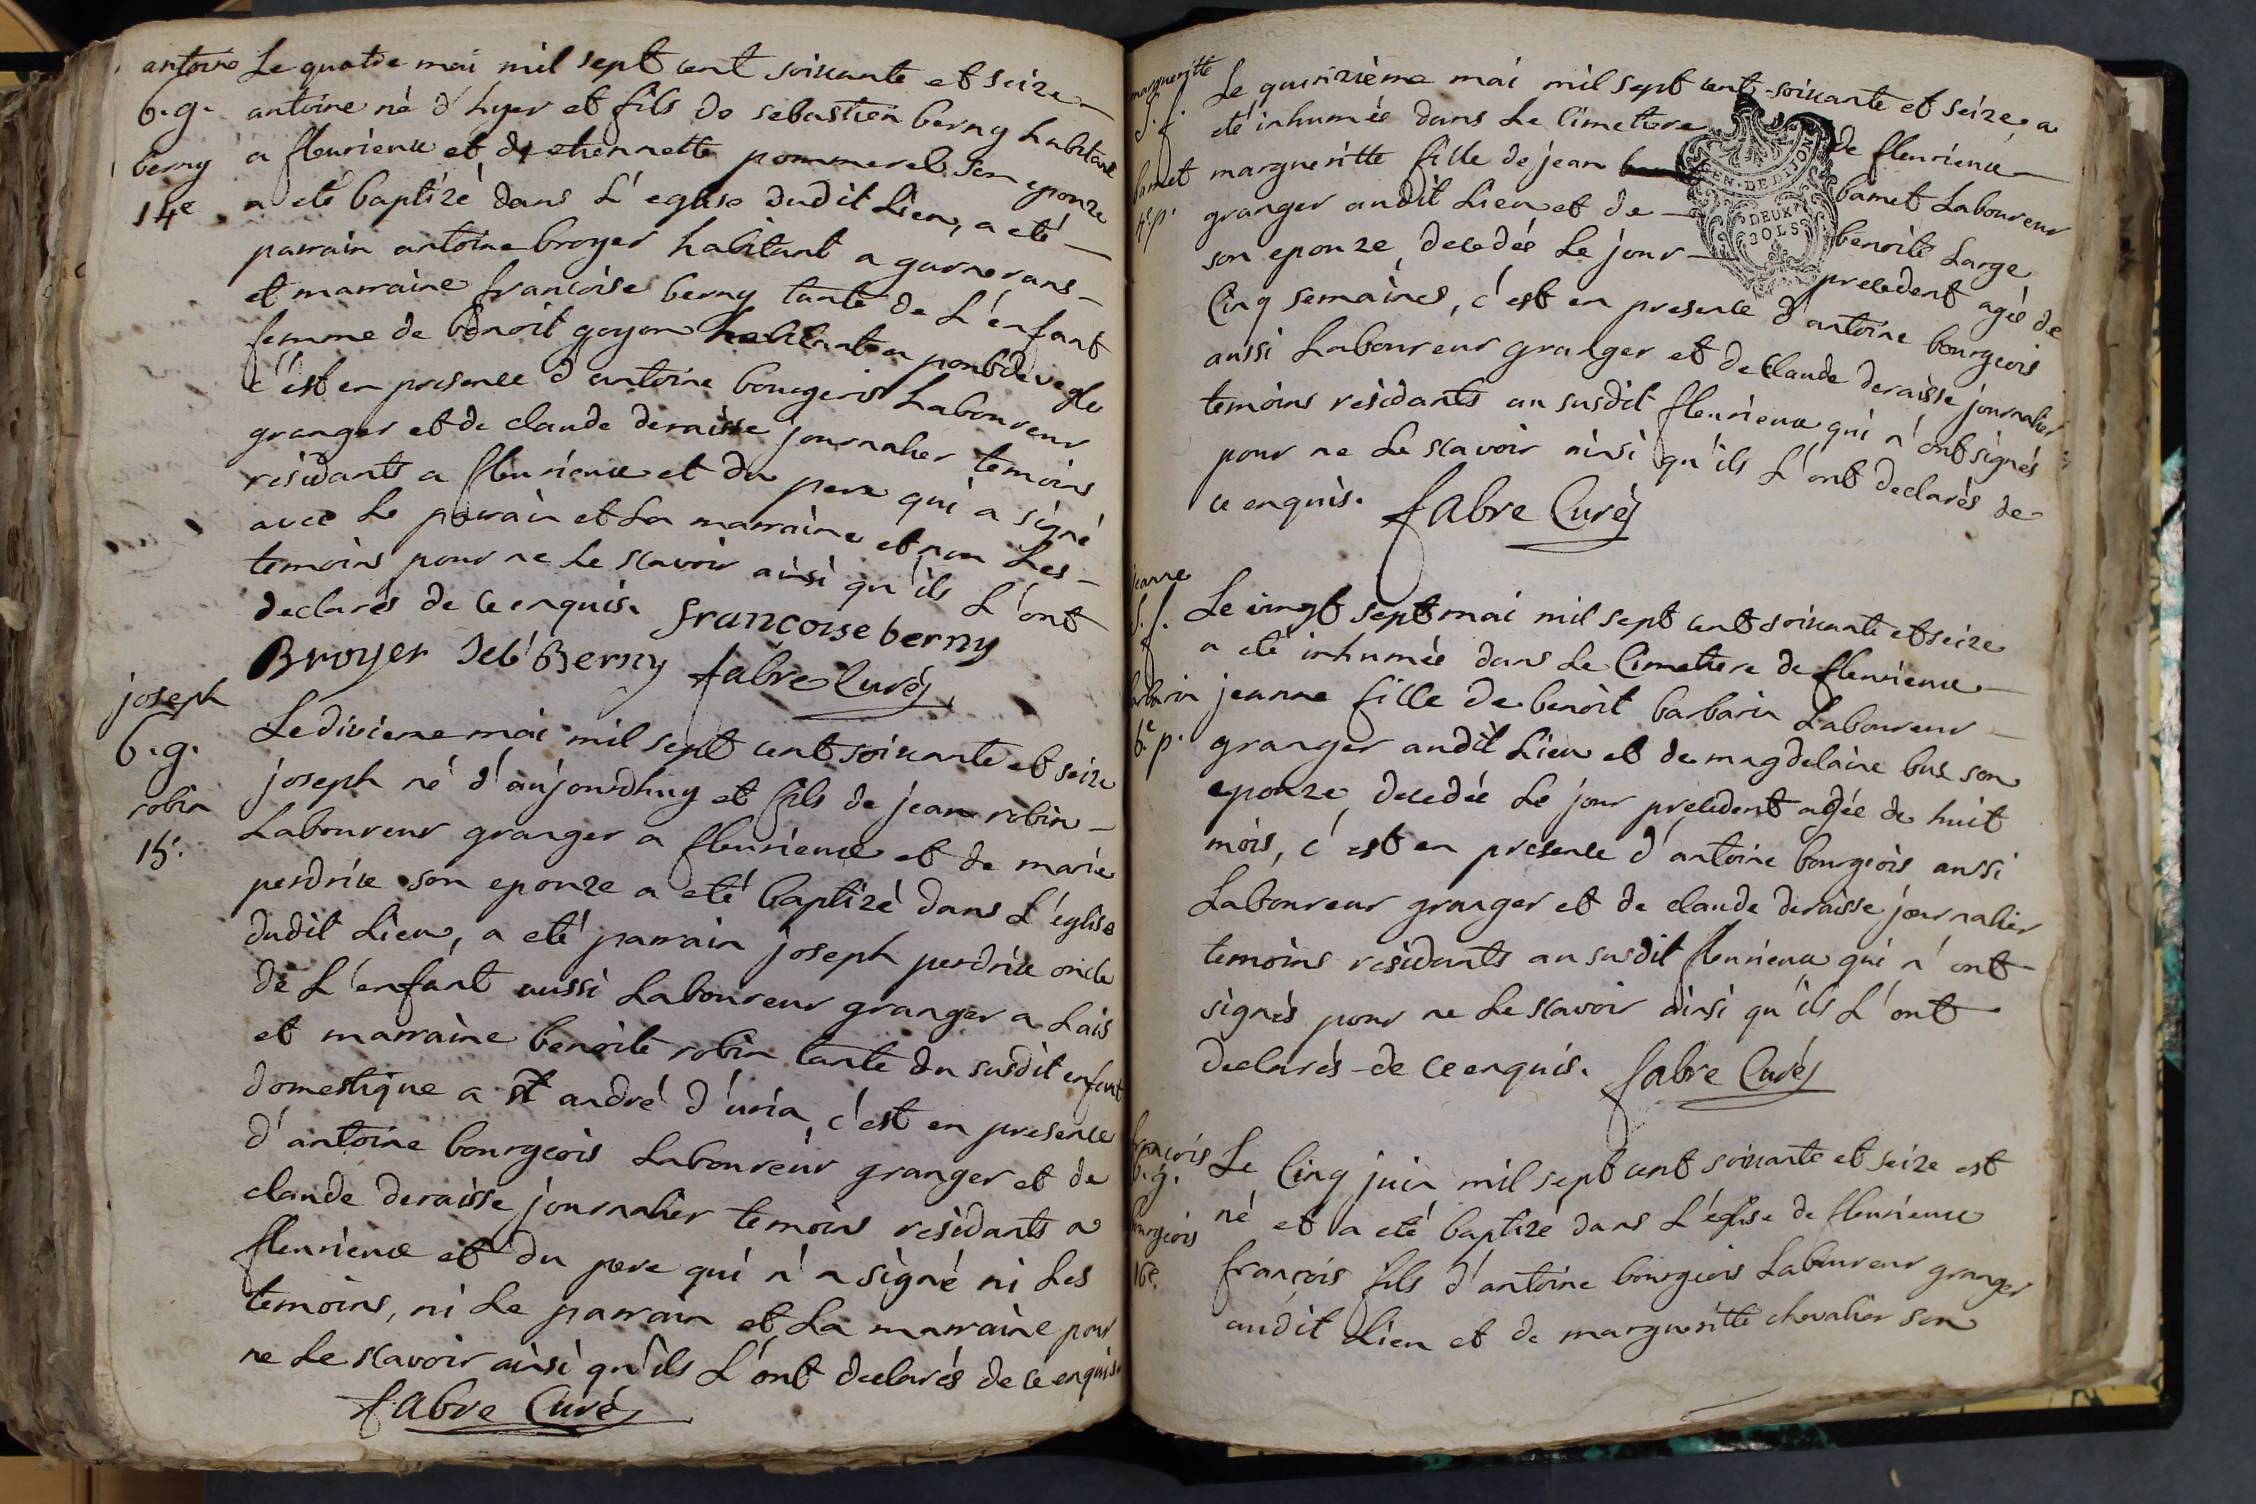 antoine
b. g.
berny
14e
Le quatre mai mil sept cent soixante et seize
antoine né d'hyer et fils de sebastien berny habitant
a fleurieux et de etiennette pommerel son epouze
a eté baptizé dans L'eglise dudit Lieu, a eté
parrain antoine broyer habitant a garnerans
et marraine francoise berny tante de L'enfant
femme de benoit goyon habitant a pontdevegle
c'est en presence d'antoine bourgeois Laboureur
granger et de claude deraisse journalier temoins
residants a fleurieux et du pere qui a signé
avec Le parrain et La marraine et non Les
temoins pour ne Le scavoir ainsi qu'ils L'ont
declarés de ce enquis. francoise berny
Broyer Berny fabre Curé
joseph
b. g.
robin
15.
Le dixieme mai mil sept cent soixante et seize
joseph né d'aujourdhuy et fils de jean robin
Laboureur granger a fleurieux et de marie
perdrix son epouze a eté baptizé dans L'eglise
dudit Lieu, a eté parrain joseph perdrix oncle
de L'enfant aussi Laboureur granger a Lais
et marraine benoite robin tante du susdit enfant
domestique a st andré d'uria, c'est en presence
d'antoine bourgeois Laboureur granger et de
claude deraisse journalier temoins residants a
fleurieux et du pere qui n'a signé ni Les
temoins, ni Le parrain et La marraine pour
ne Le scavoir ainsi qu'ils L'ont declarés de ce enquis.
fabre Curé
margueritte
S. f.
bamet
4e. p.
Le quinzième mai mil sept cent soixante et seize a
eté inhumée dans Le Cimetiere de fleurieux
margueritte fille de jean bamet Laboureur
granger audit Lieu et de benoite Large
son epouze, decedée Le jour precedent agée de
Cinq semaines, c'est en presence d'antoine bourgeois
aussi Laboureur granger et de Claude deraisse journalier
temoins residants au susdit fleurieux qui n'ont signés
pour ne Le scavoir ainsi qu'ils L'ont declarés de
ce enquis. fabre Curé
GEN. DE DIJON
DEUX
SOLS
jeanne
S. f.
barbarin
6e. p.
Le vingt sept mai mil sept cent soixante et seize
a eté inhumée dans Le Cimetiere de fleurieux
jeanne fille de benoit barbarin Laboureur
granger audit Lieu et de magdelaine bus son
epouze, decedée Le jour precedent agée de huit
mois, c'est en presence d'antoine bourgeois aussi
Laboureur granger et de claude deraisse journalier
temoins residants au susdit fleurieux qui n'ont
signés pour ne Le scavoir ainsi qu'ils L'ont
declarés de ce enquis. fabre Curé
françois
b. g.
bourgeois
16e.
Le Cinq juin mil sept cent soixante et seize est
né et a eté baptizé dans L'église de fleurieux
françois fils d'antoine bourgeois Laboureur granger
audit Lieu et de margueritte chevalier son